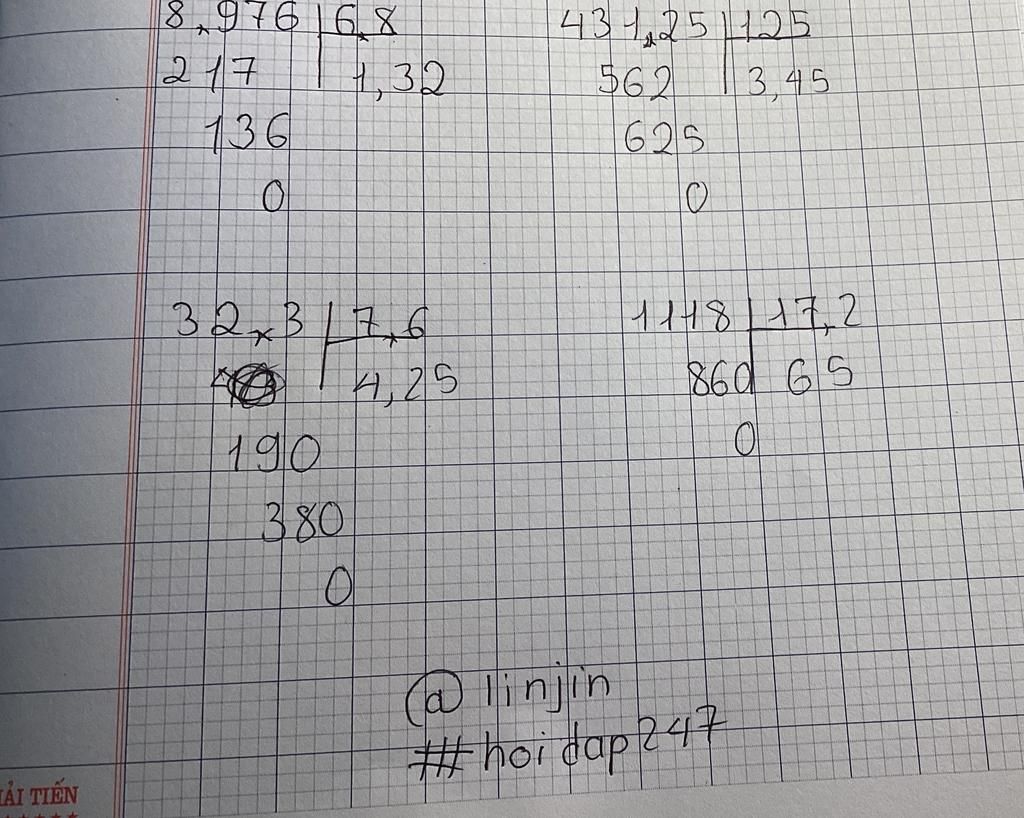 8,976 6,8
217 1,32
136
0
431,25 125
562 3,45
625
0
32,3 7,6
4,25
190
380
0
1118 17,2
860 65
0
@linjin
#hoidap247
ẢI TIẾN